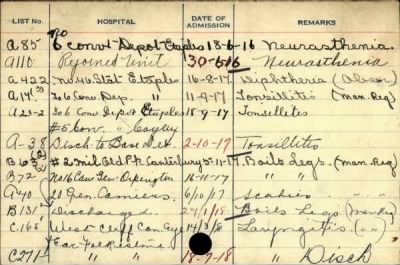 LIST No. HOSPITAL DATE OF ADMISSION REMARKS
To
A85 6 Conv Depot Etaples 18-6-16 Neurasthenia.
A110 Rejoined Unit 30-6-16 Neurasthenia
A422 No 46 Stat Etaples 16-8-17 Diphtheria (Absor)
A14 To 6 Conv. Dep. " 11-9-17 Tonsillitis (Man. Reg)
To 6 Conv Depot Etaples 18-9-17 Tonselletes
#5 Conv. "
A-38 Disch to Base Det. 2-10-17 Tonsillitis
#2 Mil Canterbury 5-11-17 Boils Legs. (Man. Reg)
No 16 Can Gen Orpington 16-11-17 " "
A40 Gen. Camiers. 6/10/17 Scabies. " "
B131 Discharged. 29/1/18 Boils Legs
C.168 West Cliff Can Eye 14/3/18 Laryngitis. " "
Ear Folkestone
C271 " " 18-7-18 " Disch